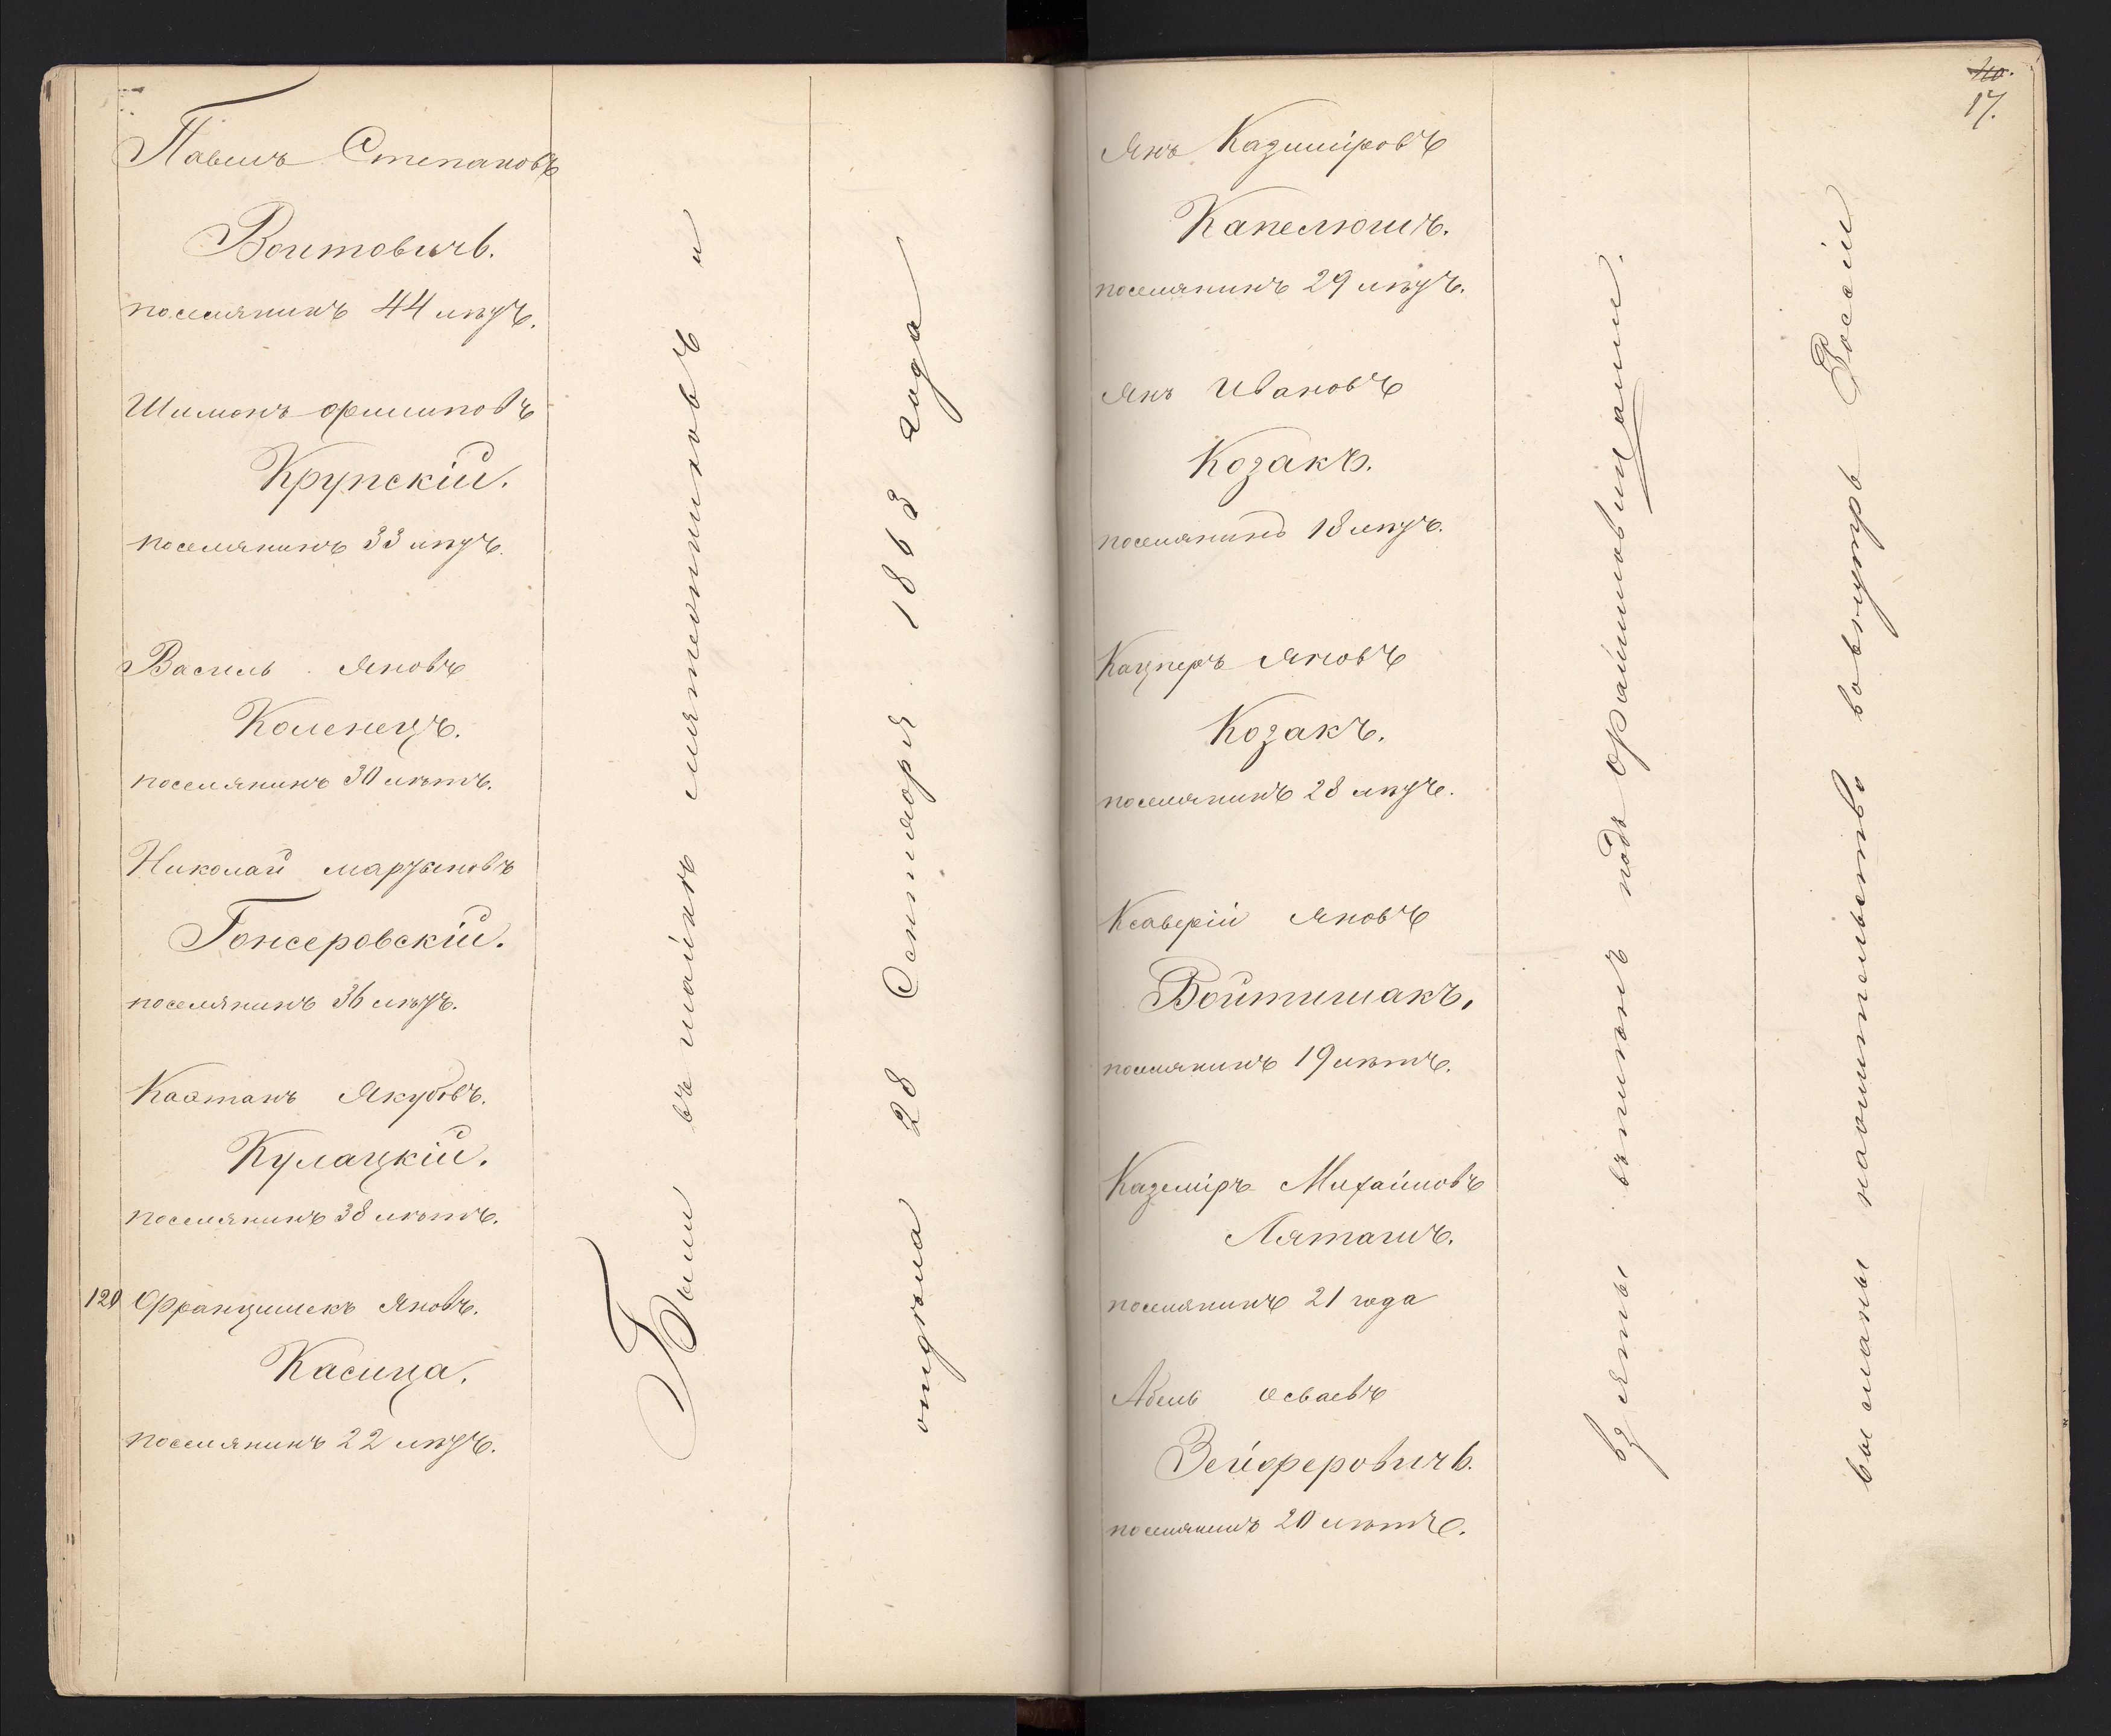 Павелъ Степановъ
Воитовичъ.
поселянинъ 44 лѣтъ.
Шимонъ Филиповъ
Крупскій.
поселянинъ 33 лѣтъ.
Василь Яновъ
Коленецъ.
поселянинъ 30 лѣтъ.
Николай Мартыновъ
Гонсеровскій.
поселянинъ 36 лѣтъ.
Каэтанъ Якубовъ.
Кулацкій.
поселянинъ 38 лѣтъ.
120 Францишекъ Яновъ.
Касица.
поселянинъ 22 лѣтъ.
Были въ шайкѣ мятежниковъ и
отдѣла 28 Сентября 1863 года
40.
17.
Янъ Казиміровъ
Капелюшъ.
поселянинъ 29 лѣтъ.
Янъ Ивановъ
Козакъ.
поселянинъ 18 лѣтъ.
Кацперъ Яновъ
Козакъ.
поселянинъ 28 лѣтъ.
Ксаверій Яновъ
Войтишакъ.
поселянинъ 19 лѣтъ.
Казиміръ Михайловъ
Лятагиъ.
поселянинъ 21 года
Абель
Зейферовичъ.
поселянинъ 20 лѣтъ.
взяты въ плѣнъ подъ
высланы на жительство во внутрь Россіи